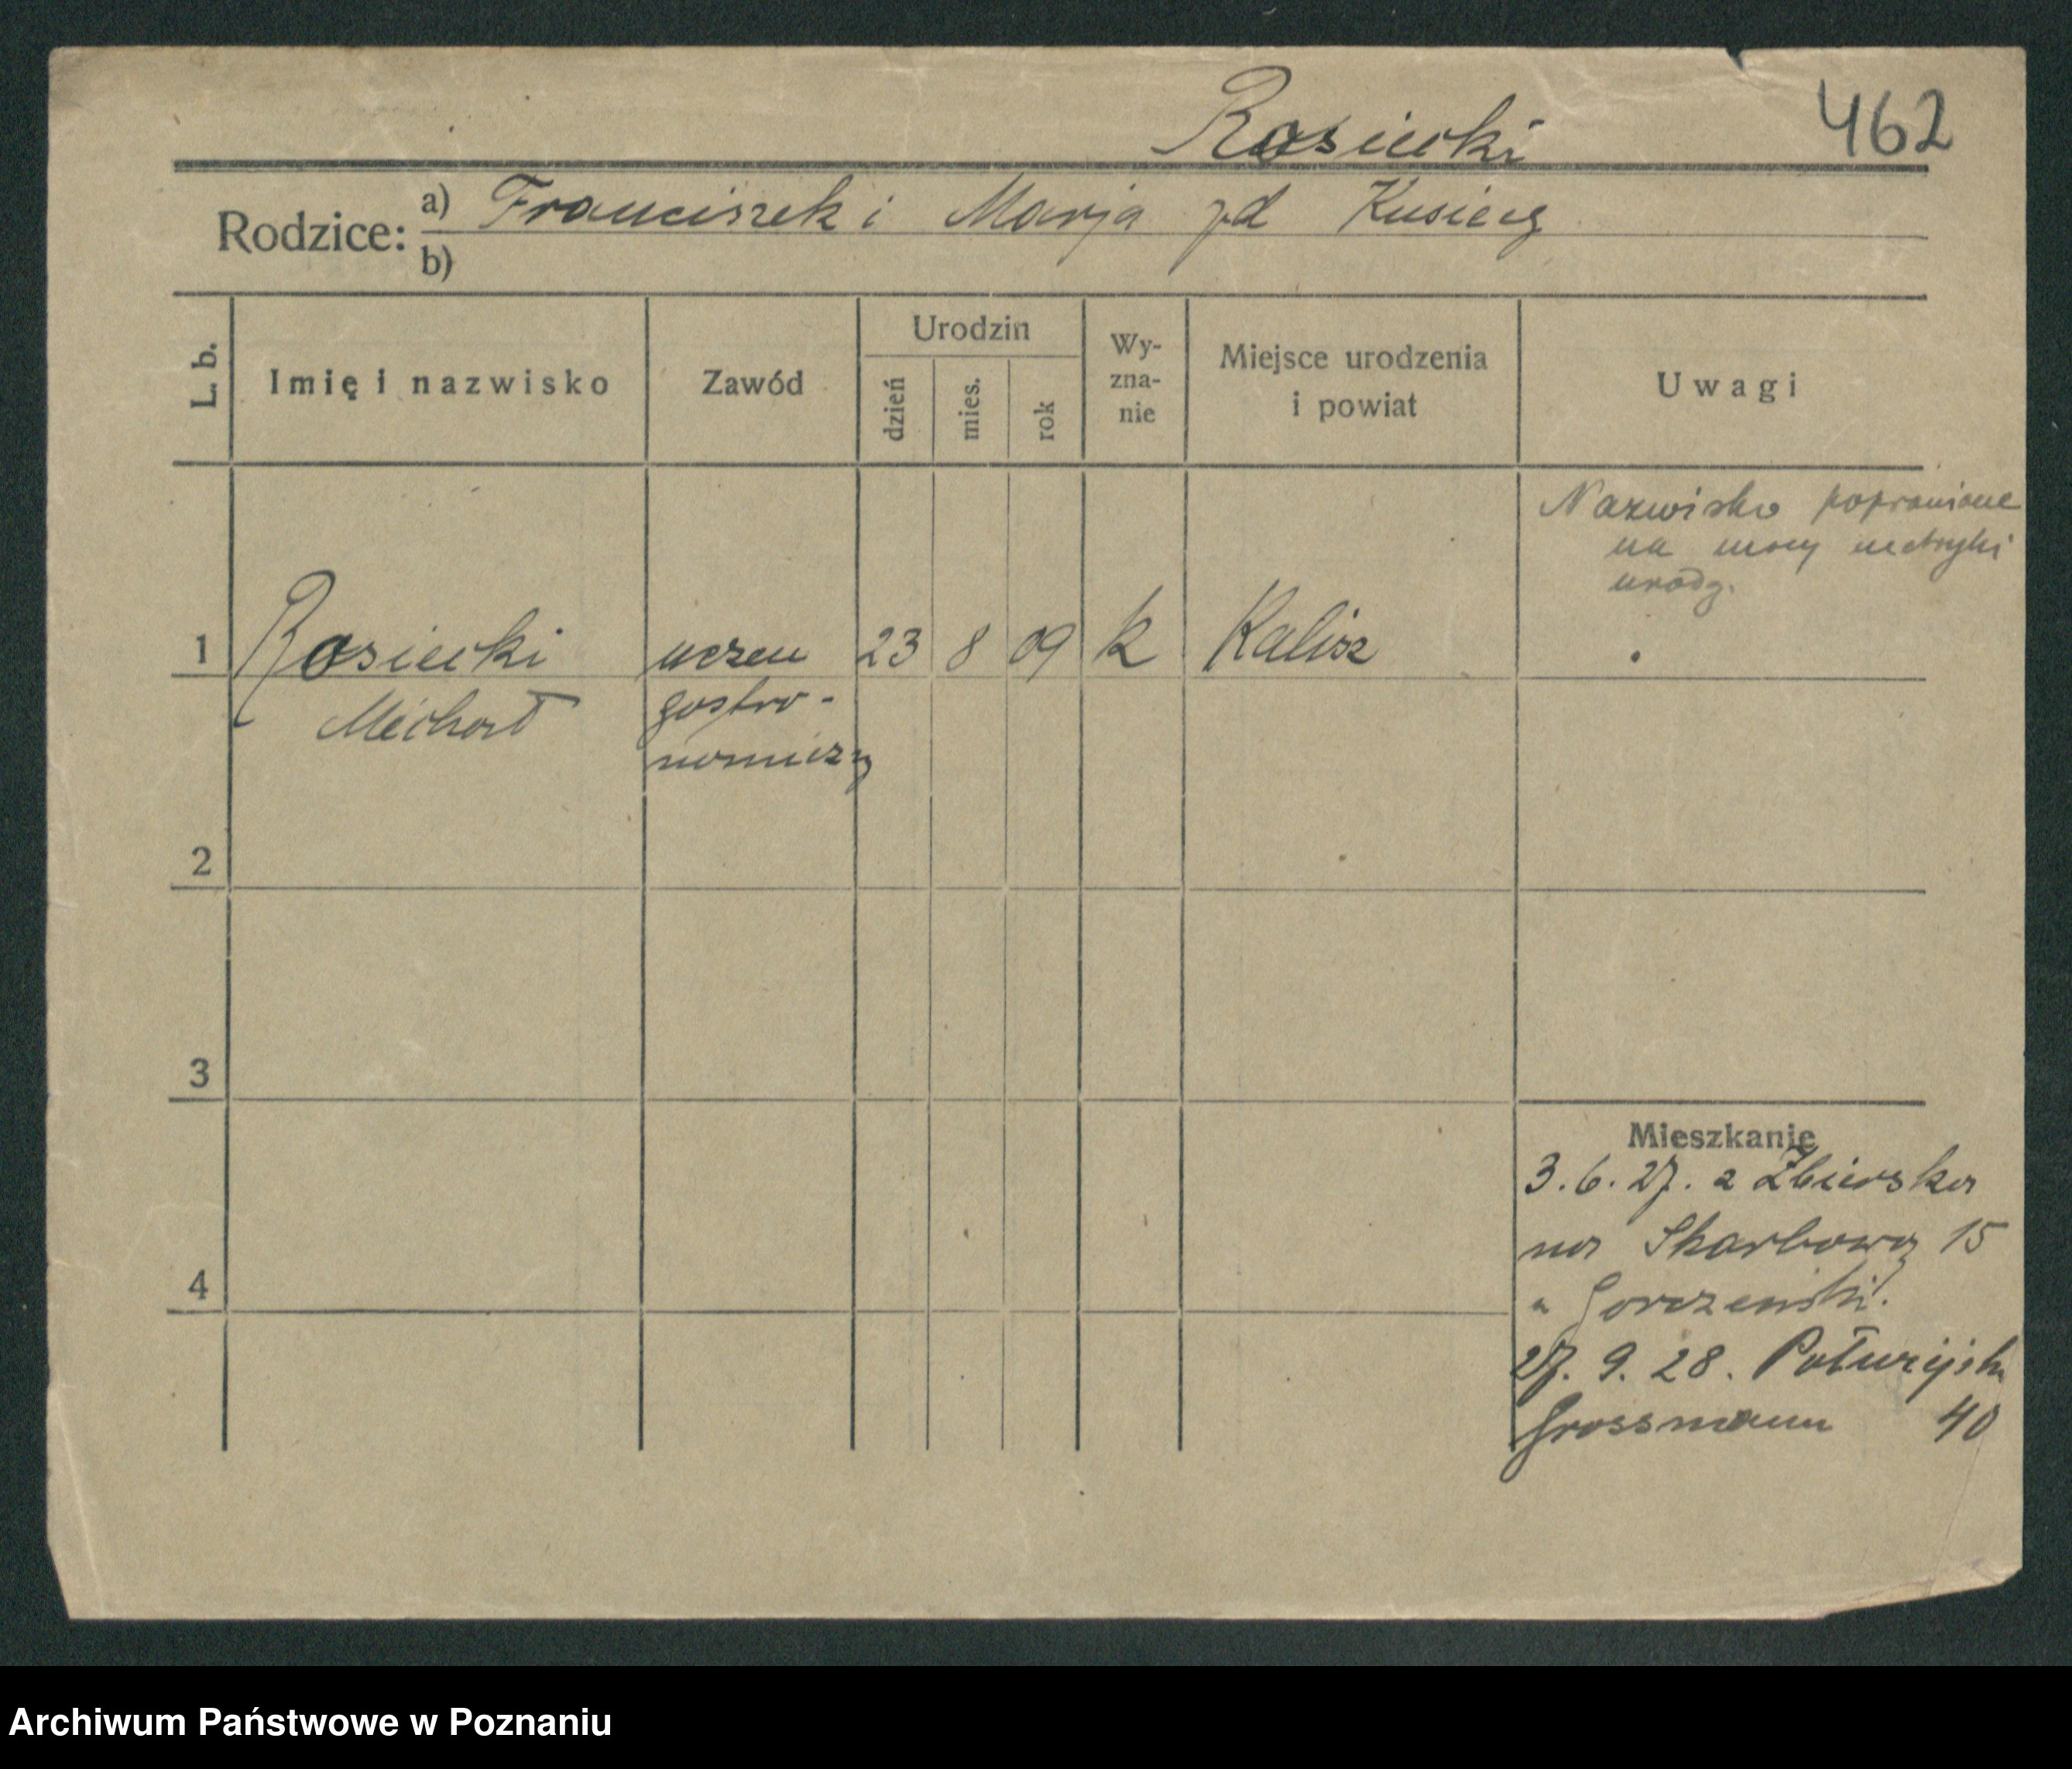 Rosiecki
462
Rodzice:
a) Franciszek i Marja zd Kusicz
b)
L. b.
Imię i nazwisko
Zawód
Urodzin
dzień
mies.
rok
Wy-
zna-
nie
Miejsce urodzenia
i powiat
Uwagi
Nazwisko poprawione
na mocy metryki
urodz.
1 Rosiecki uczeń 23 8 09 k Kalisz
Michał gastro-
nomiczny
2
3
4
Mieszkanie
3. 6. 27. z Zbierska
na Skarbową 15
" Gorzeński.
27. 9. 28.
Grossmann 40
Archiwum Państwowe w Poznaniu